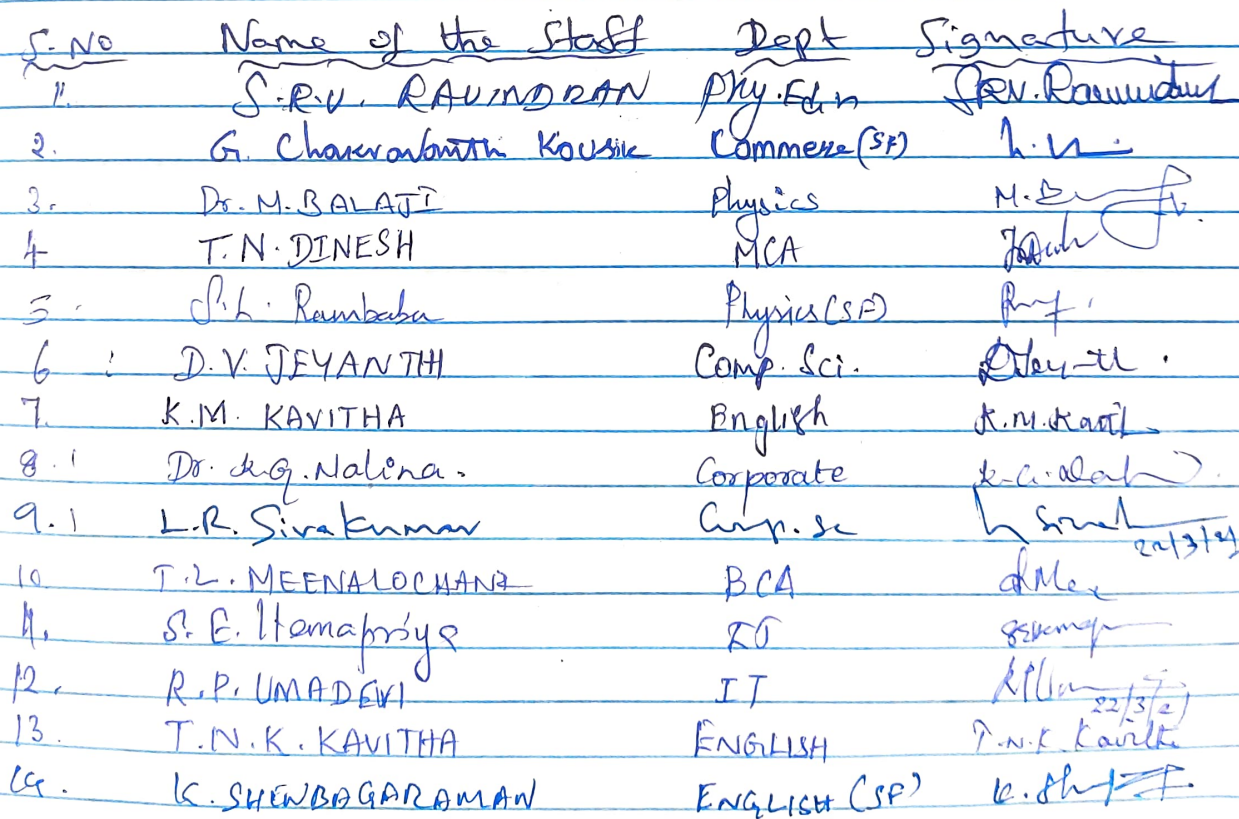 S. No Name of the Staff Dept Signature
1. S.R.V. RAVINDRAN Phy. Edn SRV. Ravindran
2. G. Kousik Commerce (SF)
3. Dr. M. BALAJI Physics M. B
4 T. N. DINESH MCA
5. S. L. Rambabu Physics (SF)
6 D. V. JEYANTHI Comp. Sci.
7. K.M. KAVITHA English K.M. Kavi
8. Dr. K.G. Nalina. Corporate
9. L.R. Sivakumar Comp. Sc 22/3/21
10 T. L. MEENALOCHANI BCA
11. S. E. Hemapriya IT
12. R. P. UMADEVI IT 22/3/21
13. T. N. K. KAVITHA ENGLISH T.N.K. Kavitha
14. K. SHENBAGARAMAN ENGLISH (SF) K. Sh